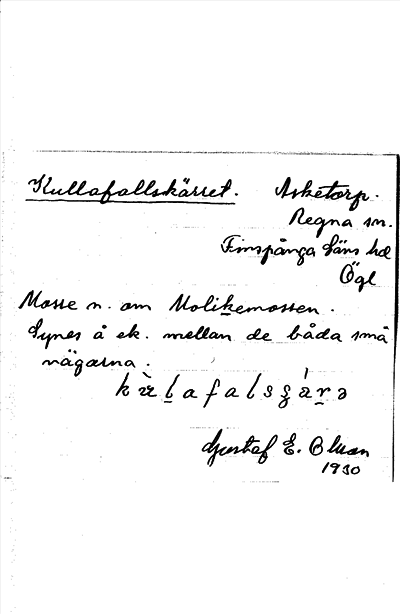 Kullafallskärret. Asketorp.
Regna sn.
Finspånga läns hd
Ögl
Mosse n. om Molikemossen.
Synes å ek. mellan de båda små
vägarna.
Gustaf E. Bluan
1930